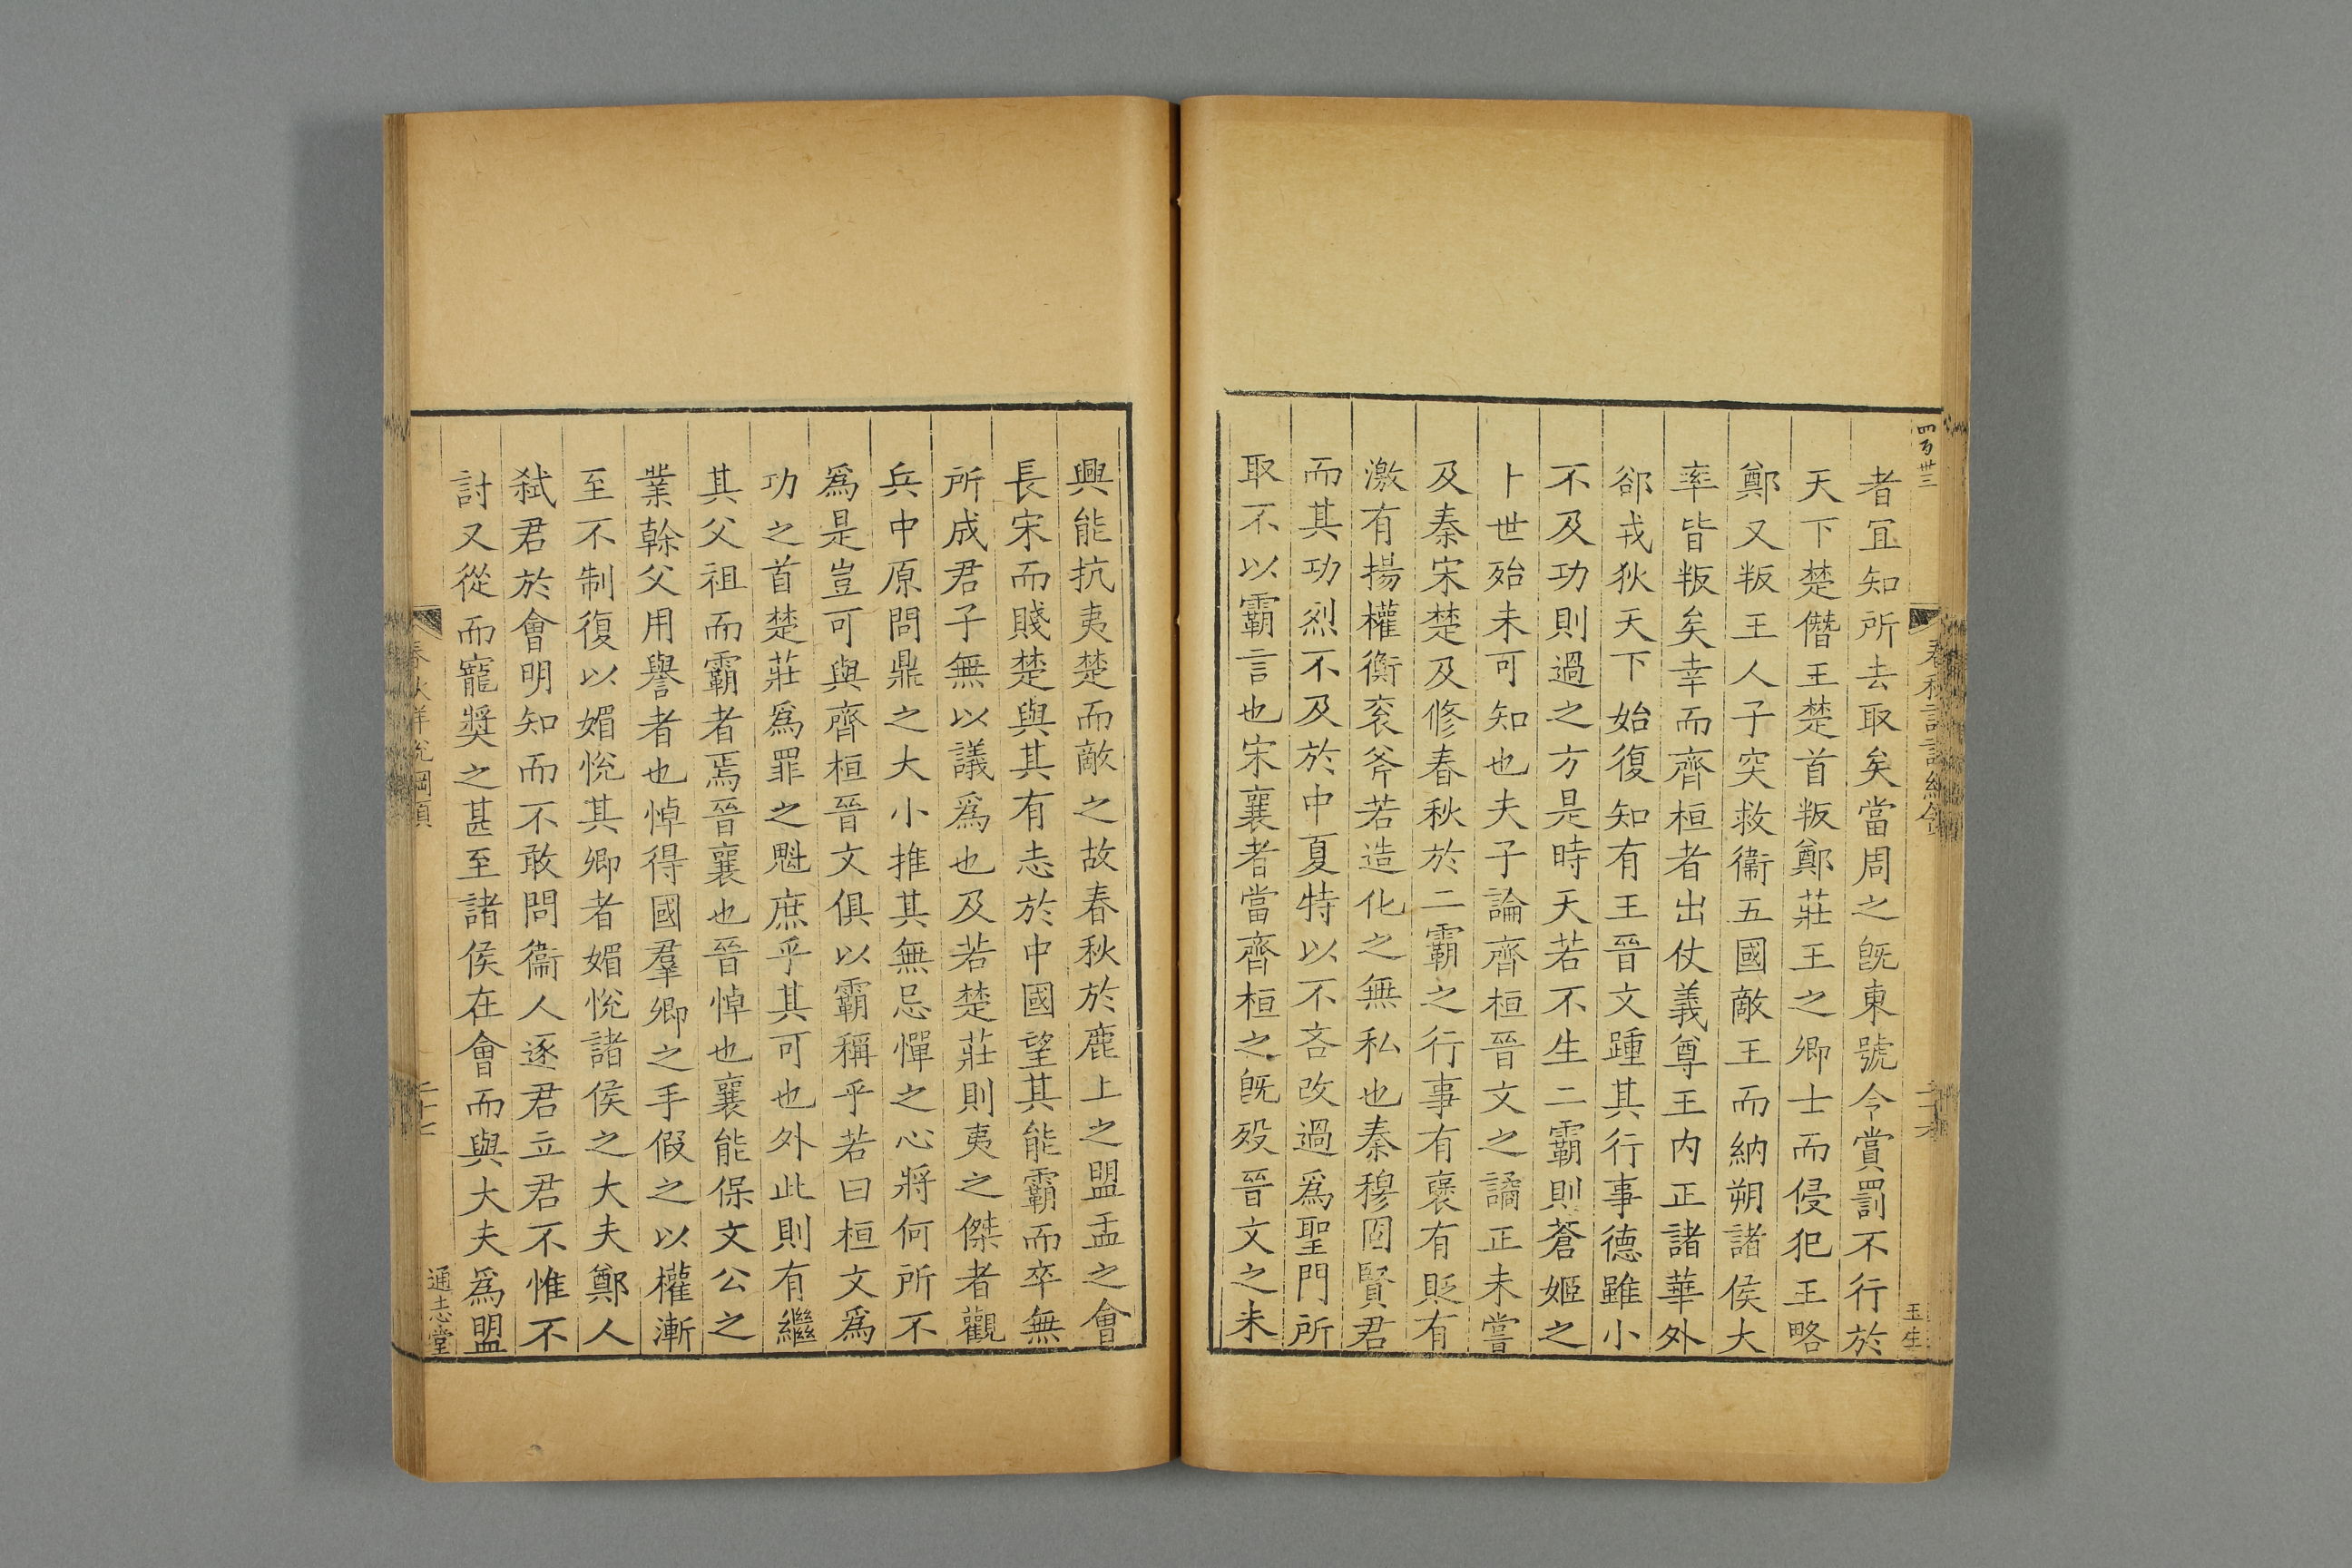 四百卅三
者宜知所去取矣當周之旣東號令賞罰不行於
天下楚僭王楚首叛鄭莊王之卿士而侵犯王略
鄭又叛王人子突救衞五國敵王而納朔諸侯大
率皆叛矣幸而齊桓者出仗義尊王内正諸華外
郤戎狄天下始復知有王晉文踵其行事德雖小
不及功則過之方是時天若不生二霸則蒼姬之
卜世殆未可知也夫子論齊桓晉文之譎正未嘗
及秦宋楚及修春秋於二霸之行事有襃有貶有
激有揚權衡衮斧若造化之無私也秦穆固賢君
而其功烈不及於中夏特以不吝改過爲聖門所
取不以霸言也宋襄者當齊桓之旣歿晉文之未
玉生
興能抗夷楚而敵之故春秋於鹿上之盟盂之會
長宋而賤楚與其有志於中國望其能霸而卒無
所成君子無以議爲也及若楚莊則夷之傑者觀
兵中原問鼎之大小推其無忌憚之心將何所不
爲是豈可與齊桓晉文俱以霸稱乎若曰桓文爲
功之首楚莊爲罪之魁庶乎其可也外此則有繼
其父祖而霸者焉晉襄也晉悼也襄能保文公之
業幹父用譽者也悼得國羣卿之手假之以權漸
至不制復以媚悅其卿者媚悅諸侯之大夫鄭人
弑君於會明知而不敢問衞人逐君立君不惟不
討又從而寵奬之甚至諸侯在會而與大夫爲盟
春秋詳說綱領
二十七
通志堂